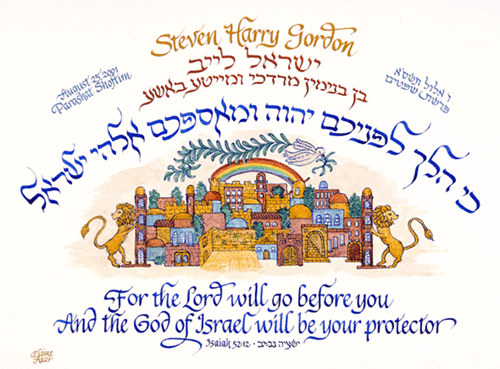 Steven Harry Gordon
ישראל לייב
בן בנימין מרדכי ומזייטע באשע
August 25, 2001
Parashat Shoftim
ו אלול תשס"א
פרשת שפטים
כי הלך לפניכם יהוה ומאספכם אלהי ישראל
For the Lord will go before you
And the God of Israel will be your protector
Isaiah 52:12 · ישעיה נב:יב
Elaine